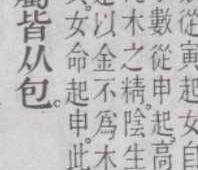 從寅起女自
數從申起。高
木之精陰生
以金不爲木
女命起申。此
屬皆从包。